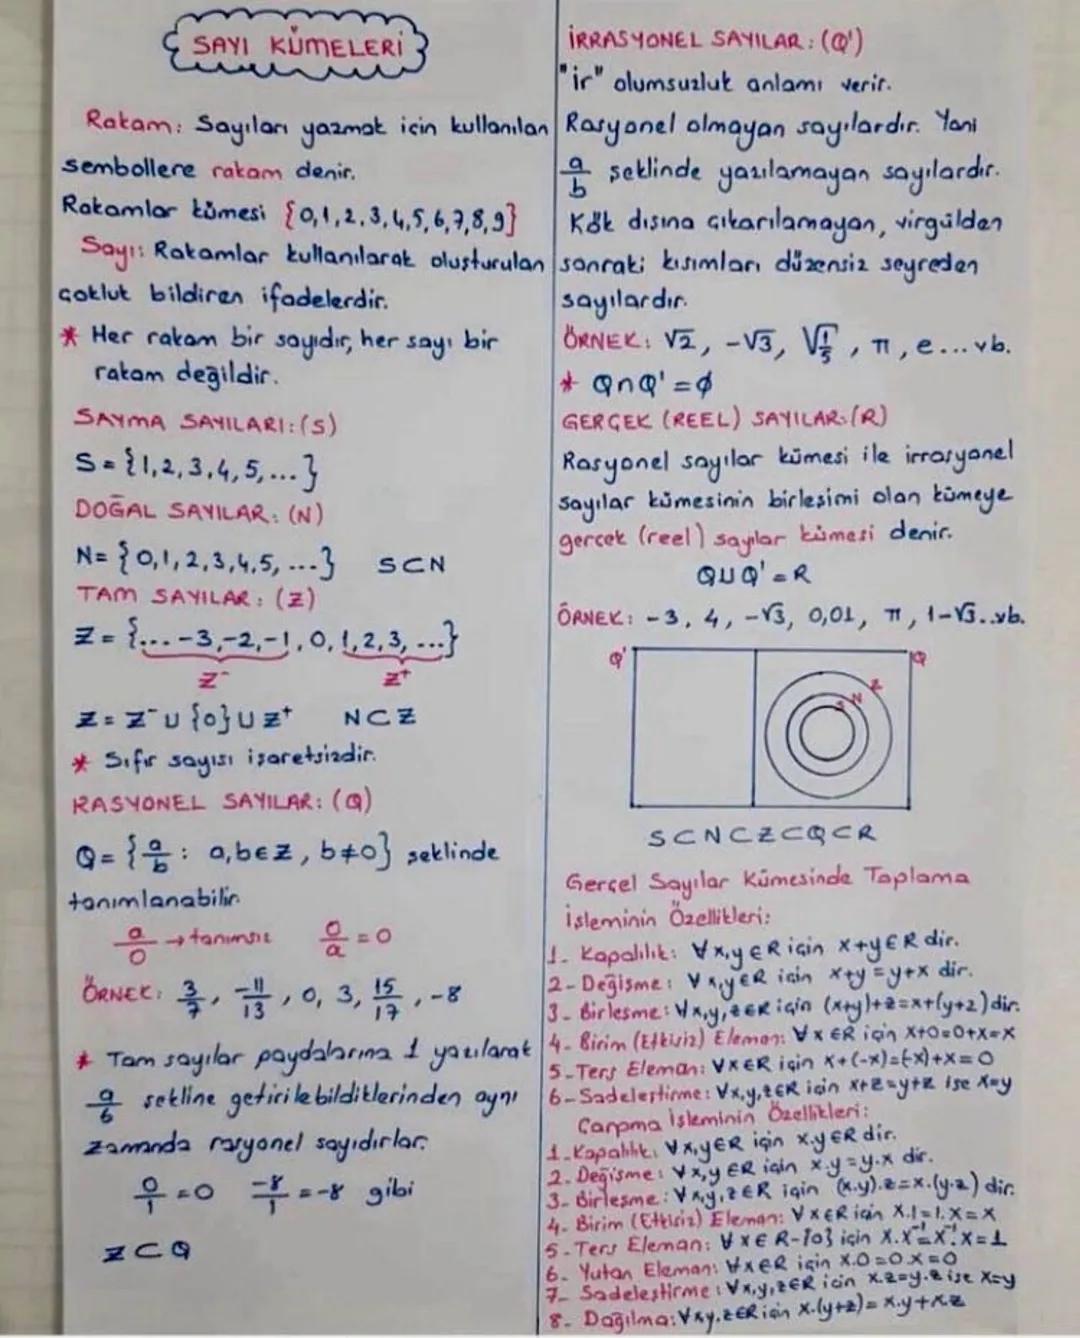 SAYI KÜMELERİ
Rakam: Sayıları yazmak için kullanılan
sembollere rakam denir.
Rakamlar kümesi {0,1,2,3,4,5,6,7,8,9}
Sayı: Rakamlar kullanılarak oluşturulan
çokluk bildiren ifadelerdir.
* Her rakam bir sayıdır, her sayı bir
rakam değildir.
SAYMA SAYILARI: (S)
S = {1,2,3,4,5,...}
DOĞAL SAYILAR: (N)
N = {0,1,2,3,4,5,...} S⊂N
TAM SAYILAR: (Z)
Z = {...-3,-2,-1,0,1,2,3,...}
Z⁻ Z⁺
Z = Z⁻∪{0}∪Z⁺ N⊂Z
* Sıfır sayısı işaretsizdir.
RASYONEL SAYILAR: (Q)
Q = {a/b : a,b∈Z, b≠0} şeklinde
tanımlanabilir.
a/0 → tanımsız 0/a = 0
ÖRNEK: 3/7, -11/13, 0, 3, 15/17, -8
* Tam sayılar paydalarına 1 yazılarak
a/b şekline getirilebildiklerinden aynı
zamanda rasyonel sayıdırlar.
0/1 = 0 -8/1 = -8 gibi
Z⊂Q
İRRASYONEL SAYILAR: (Q')
"ir" olumsuzluk anlamı verir.
Rasyonel olmayan sayılardır. Yani
a/b şeklinde yazılamayan sayılardır.
Kök dışına çıkarılamayan, virgülden
sonraki kısımları düzensiz seyreden
sayılardır.
ÖRNEK: √2, -√3, √1/5, π, e... vb.
* Q∩Q' = ∅
GERÇEK (REEL) SAYILAR: (R)
Rasyonel sayılar kümesi ile irrasyonel
sayılar kümesinin birleşimi olan kümeye
gerçek (reel) sayılar kümesi denir.
Q∪Q' = R
ÖRNEK: -3, 4, -√3, 0,01, π, 1-√3..vb.
Q' S N Z Q
S⊂N⊂Z⊂Q⊂R
Gerçel Sayılar Kümesinde Toplama
İşleminin Özellikleri:
1- Kapalılık: ∀x,y∈R için x+y∈R dir.
2- Değişme: ∀x,y∈R için x+y=y+x dir.
3- Birleşme: ∀x,y,z∈R için (x+y)+z=x+(y+z) dir.
4- Birim (Etkisiz) Eleman: ∀x∈R için x+0=0+x=x
5- Ters Eleman: ∀x∈R için x+(-x)=(-x)+x=0
6- Sadeleştirme: ∀x,y,z∈R için x+z=y+z ise x=y
Çarpma İşleminin Özellikleri:
1- Kapalılık: ∀x,y∈R için x.y∈R dir.
2- Değişme: ∀x,y∈R için x.y=y.x dir.
3- Birleşme: ∀x,y,z∈R için (x.y).z=x.(y.z) dir.
4- Birim (Etkisiz) Eleman: ∀x∈R için x.1=1.x=x
5- Ters Eleman: ∀x∈R-{0} için x.x⁻¹=x⁻¹.x=1
6- Yutan Eleman: ∀x∈R için x.0=0.x=0
7- Sadeleştirme: ∀x,y,z∈R için x.z=y.z ise x=y
8- Dağılma: ∀x,y,z∈R için x.(y+z)=x.y+x.z